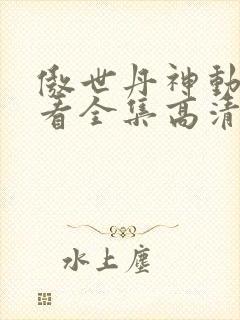 傲世丹神動
看全集高清
水上塵